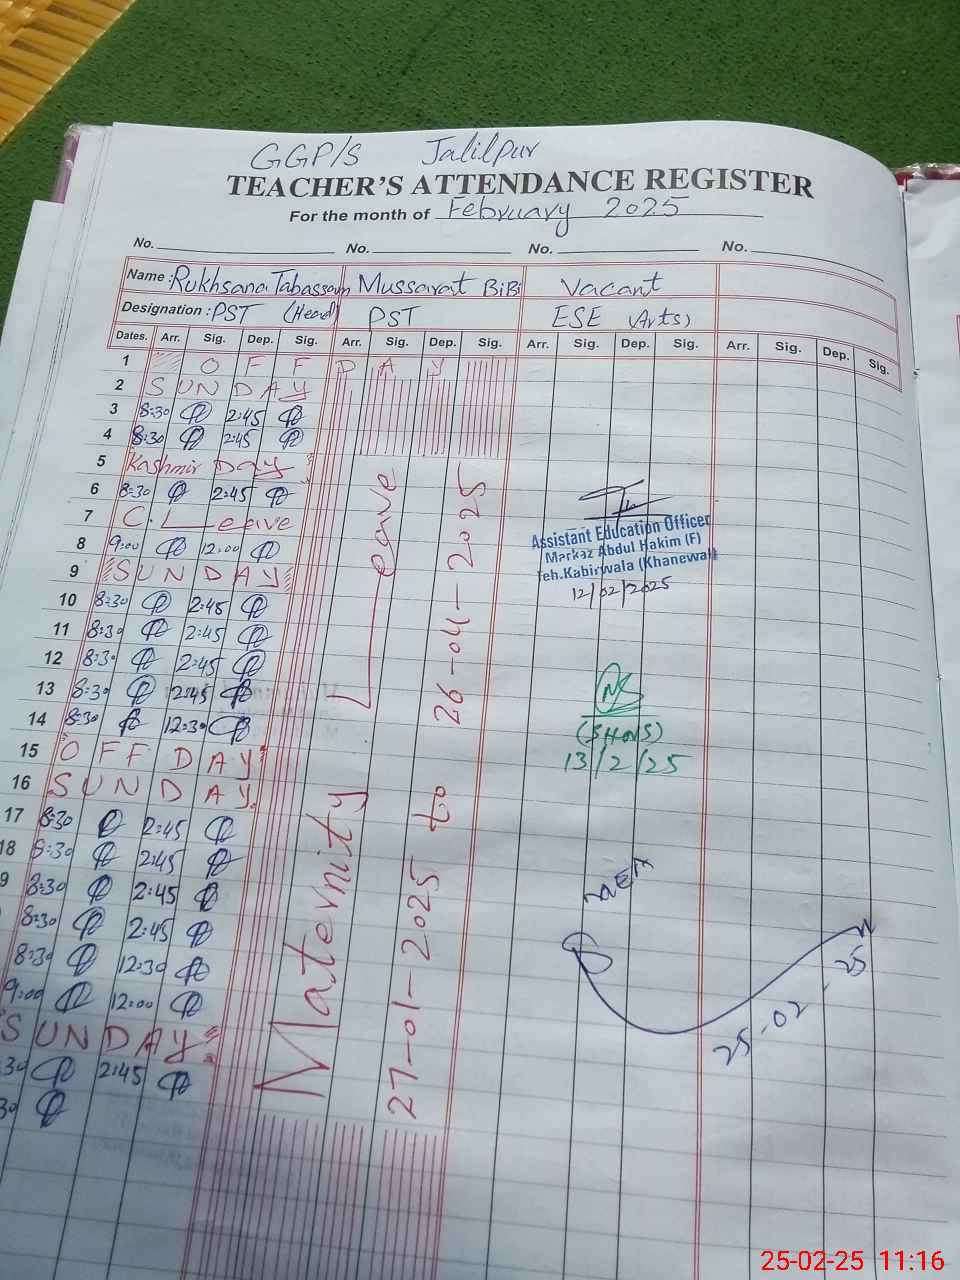 GGP/S Jalilpur
TEACHER'S ATTENDANCE REGISTER
For the month of February 2025
No. No. No. No.
Name : Rukhsana Tabassam Mussarat BiBi Vacant
Designation : PST (Head) PST ESE (Arts)
Dates. Arr. Sig. Dep. Sig. Arr. Sig. Dep. Sig. Arr. Sig. Dep. Sig. Arr. Sig. Dep. Sig.
1 O F F D A Y
2 S U N D A Y
3 8:30 2:45
4 8:30 2:45
5 Kashmir Day
6 8:30 2:45
7 C. Leave
8 9:00 12:00
9 S U N D A Y
10 8:30 2:45
11 8:30 2:45
12 8:30 2:45
13 8:30 2:45
14 8:30 12:30
15 O F F D A Y
16 S U N D A Y
17 8:30 2:45
18 8:30 2:45
9 8:30 2:45
8:30 2:45
8:30 12:30
9:00 12:00
S U N D A Y
30 2:45
30
Maternity Leave
27-01-2025 to 26-04-2025
Assistant Education Officer
Markaz Abdul Hakim (F)
Teh.Kabirwala (Khanewal)
12/02/2025
13/2/25
25-02-25
25-02-25 11:16